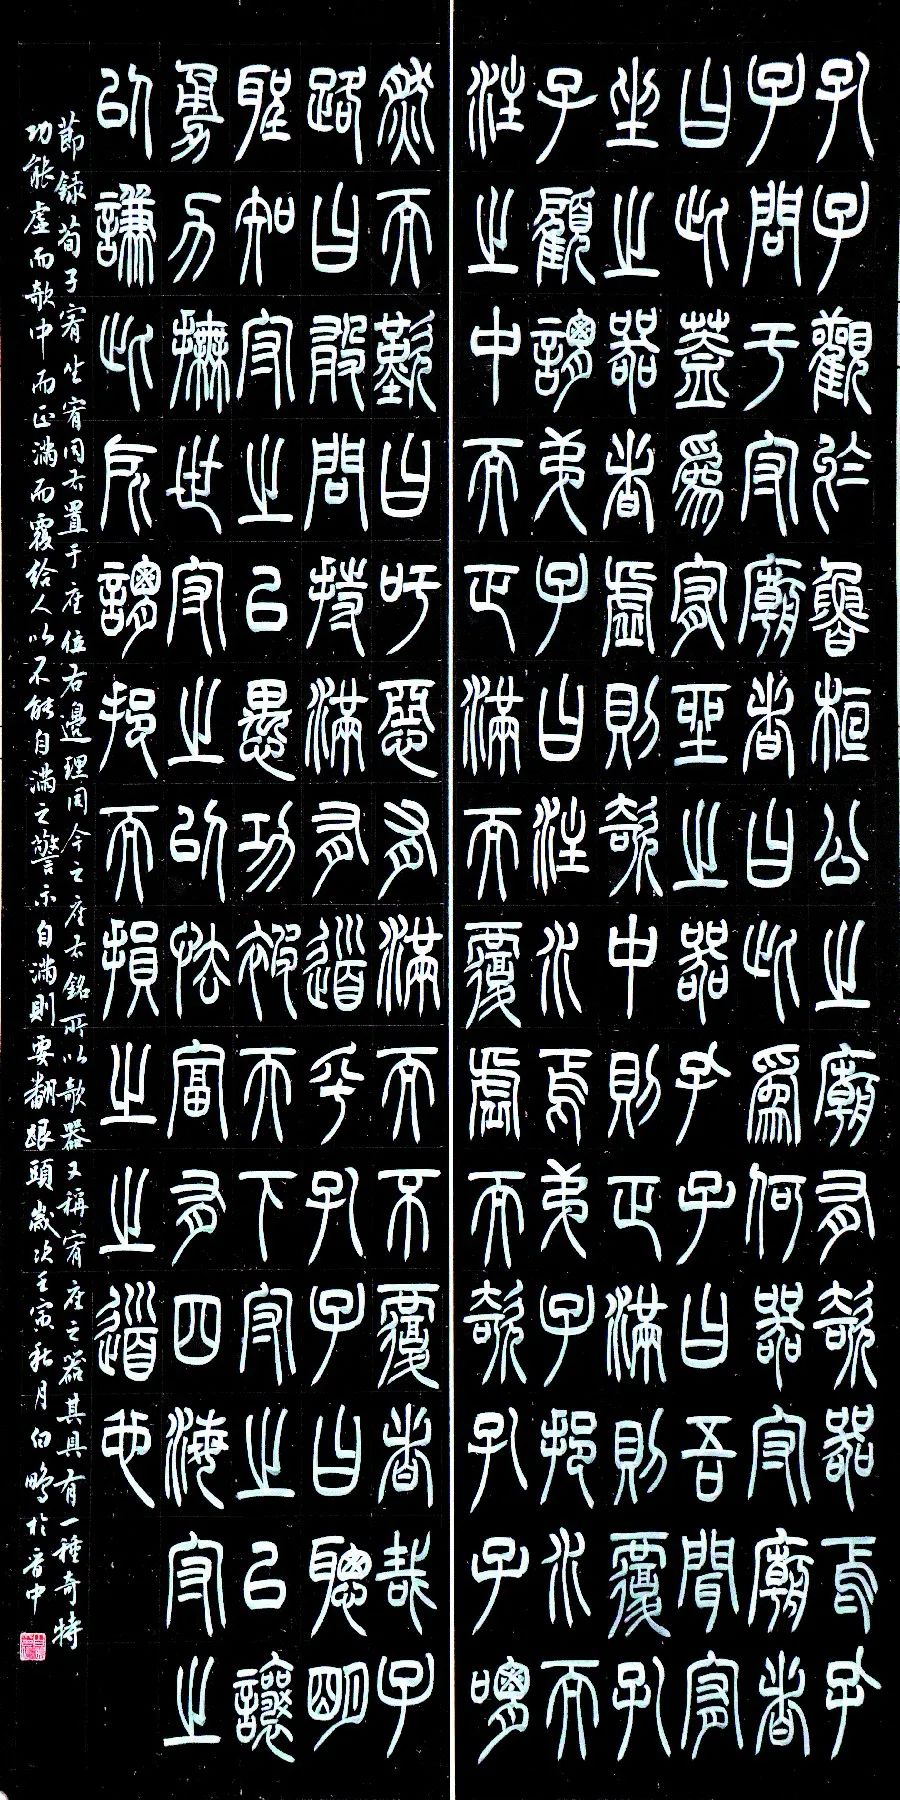 孔子觀於魯桓公之廟有欹器焉孔
子問于守廟者曰此為何器守廟者
曰此蓋為宥坐之器孔子曰吾聞宥
坐之器者虛則欹中則正滿則覆孔
子顧謂弟子曰注水焉弟子挹水而
注之中而正滿而覆虛而欹孔子喟
然而歎曰吁惡有滿而不覆者哉子
路曰敢問持滿有道乎孔子曰聰明
聖知守之以愚功被天下守之以讓
勇力撫世守之以怯富有四海守之
以謙此所謂挹而損之之道也
節錄荀子宥坐宥同右置于座位右邊理同今之座右銘所以欹器又稱宥座之器其具有一種奇特
功能虛而欹中而正滿而覆給人以不能自滿之警示自滿則要翻跟頭歲次壬寅秋月白鵬於晉中